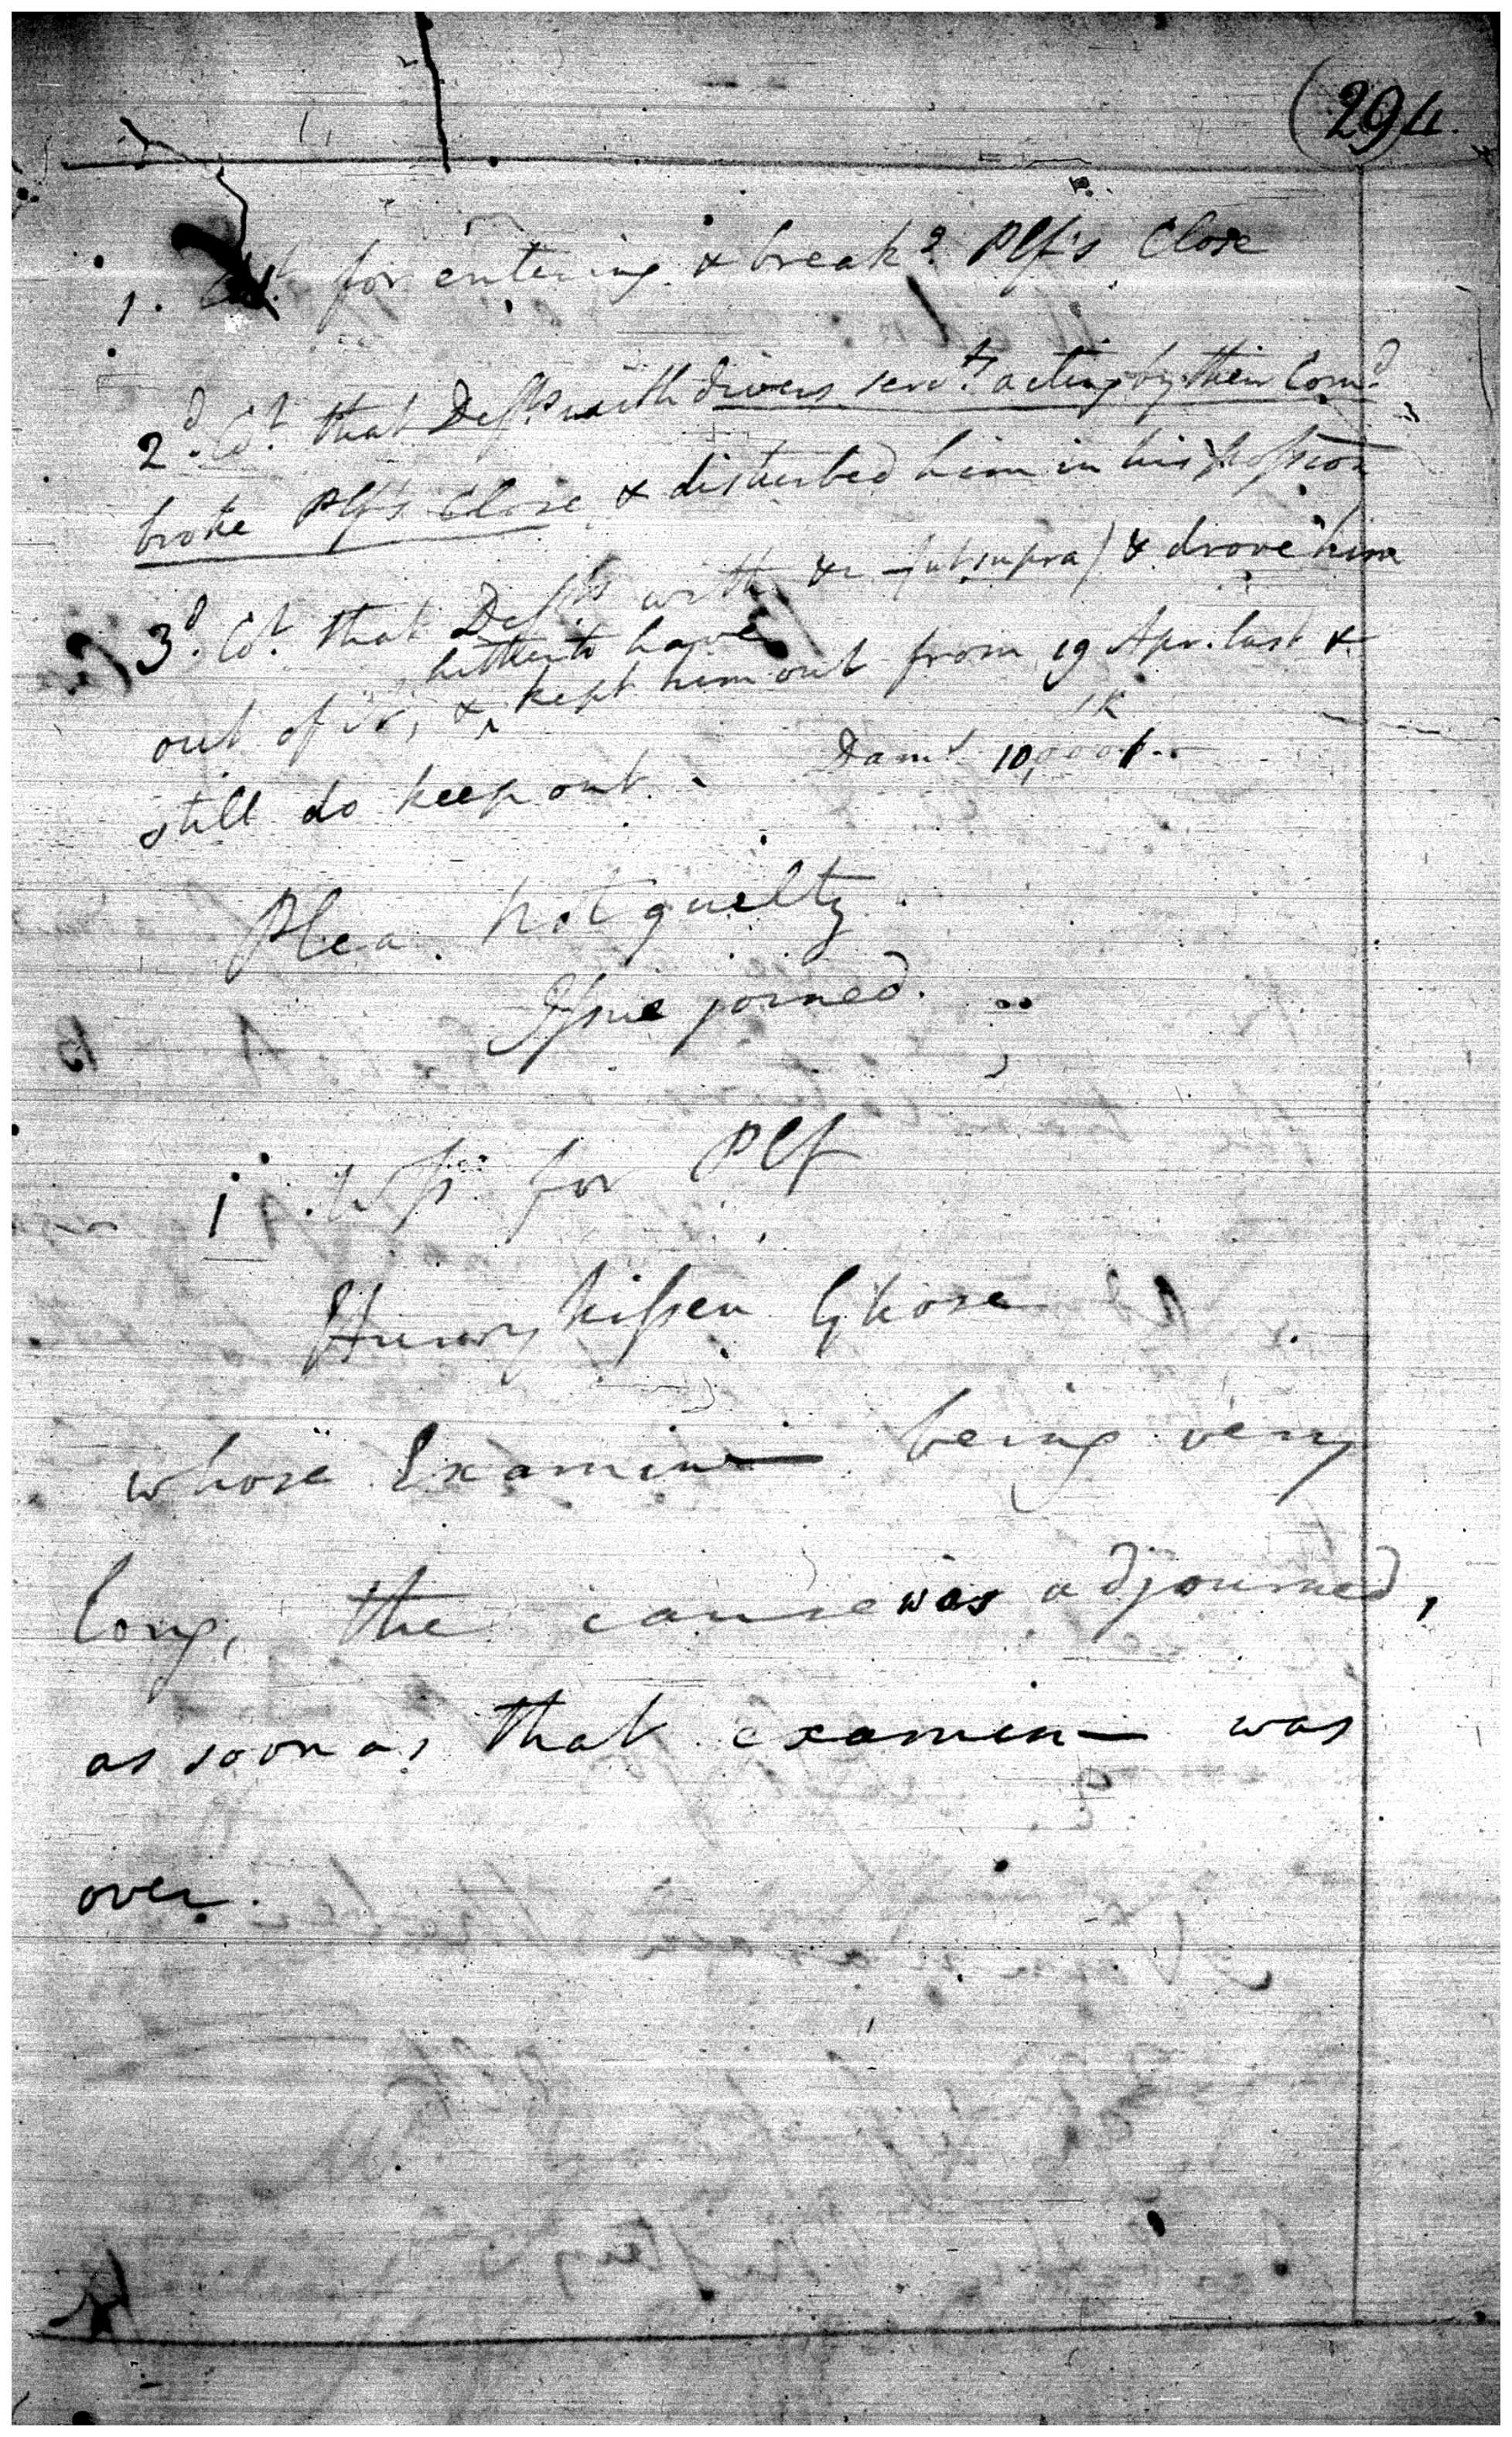 294
1. Ct. for entering & breakg. Plf's Close
2d. Ct. that Defts with divers servts. acting by their Comd.
broke Plf's Close & disturbed him in his possion
3d. Ct. that Defts with &c (ut supra) & drove him
hitherto have
out of it, & kept him out from 19 Apr. last &
still do keep out. Dams. 10,000
Plea. not guilty.
Issue joined.
1. Wss for Plf
Hurry kissen Ghose
whose Examin— being very
long, the cause was adjourned,
as soon as that examin— was
over.